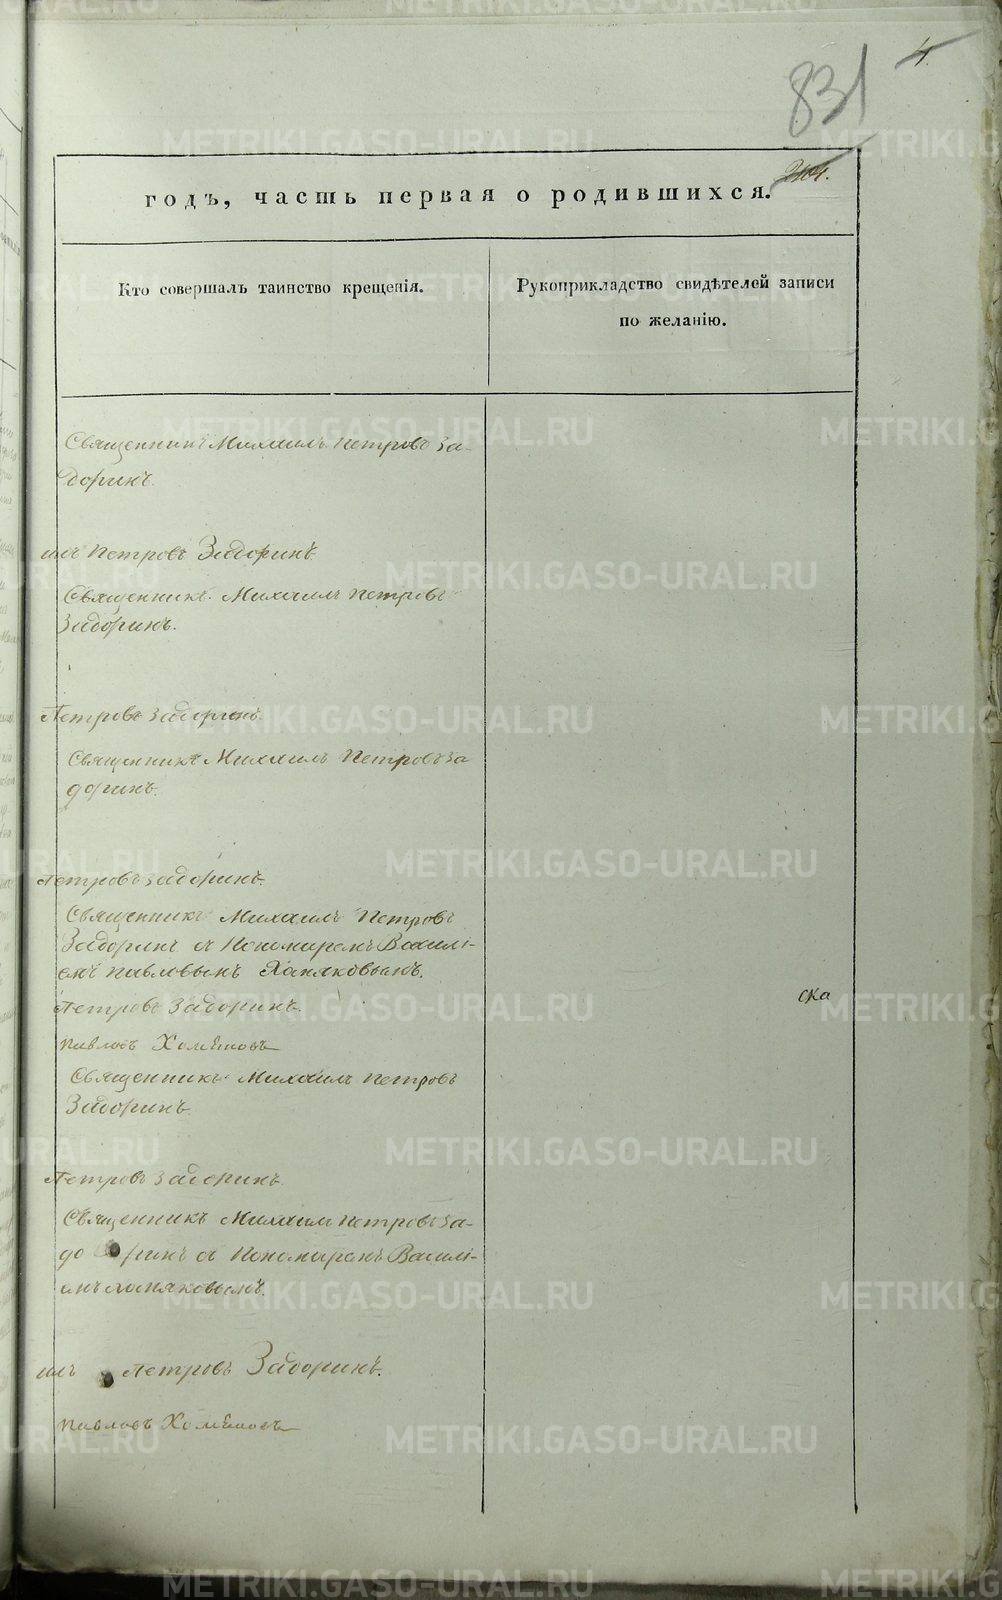 4.
831
204.
годъ, часть первая о родившихся.
Кто совершалъ таинство крещенія.
Рукоприкладство свидѣтелей записи
по желанію.
Священникъ Михаилъ Петровъ За-
доринъ.
илъ Петровъ Задоринъ
Священникъ Михаилъ Петровъ
Задоринъ.
Петровъ Задоринъ.
Священникъ Михаилъ Петровъ За
доринъ.
Петровъ Задоринъ.
Священникъ Михаилъ Петровъ
Задоринъ съ Пономаремъ Василі-
емъ Павловымъ
ска
Петровъ Задоринъ.
Павловъ
Священникъ Михаилъ Петровъ
Задоринъ.
Петровъ Задоринъ.
Священникъ Михаилъ Петровъ За-
доринъ съ Пономаремъ Василі-
емъ
илъ Петровъ Задоринъ.
Павловъ
METRIKI.GASO-URAL.RU